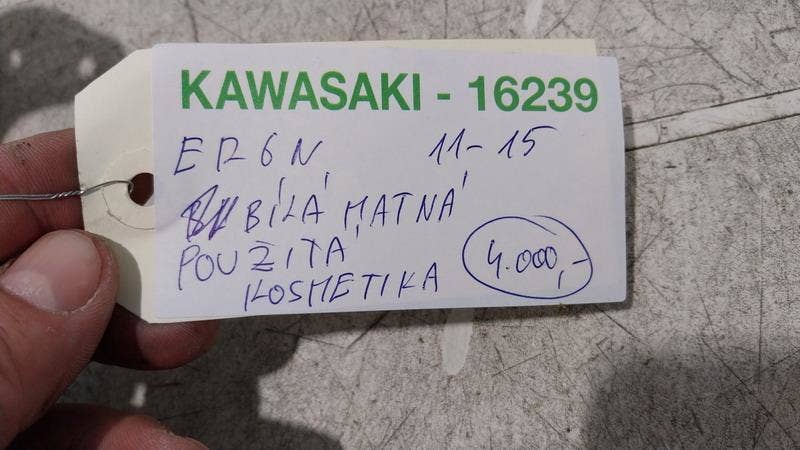 KAWASAKI - 16239
ER6N 11-15
BÍLÁ MATNÁ
POUŽITÁ
KOSMETIKA 4.000,-